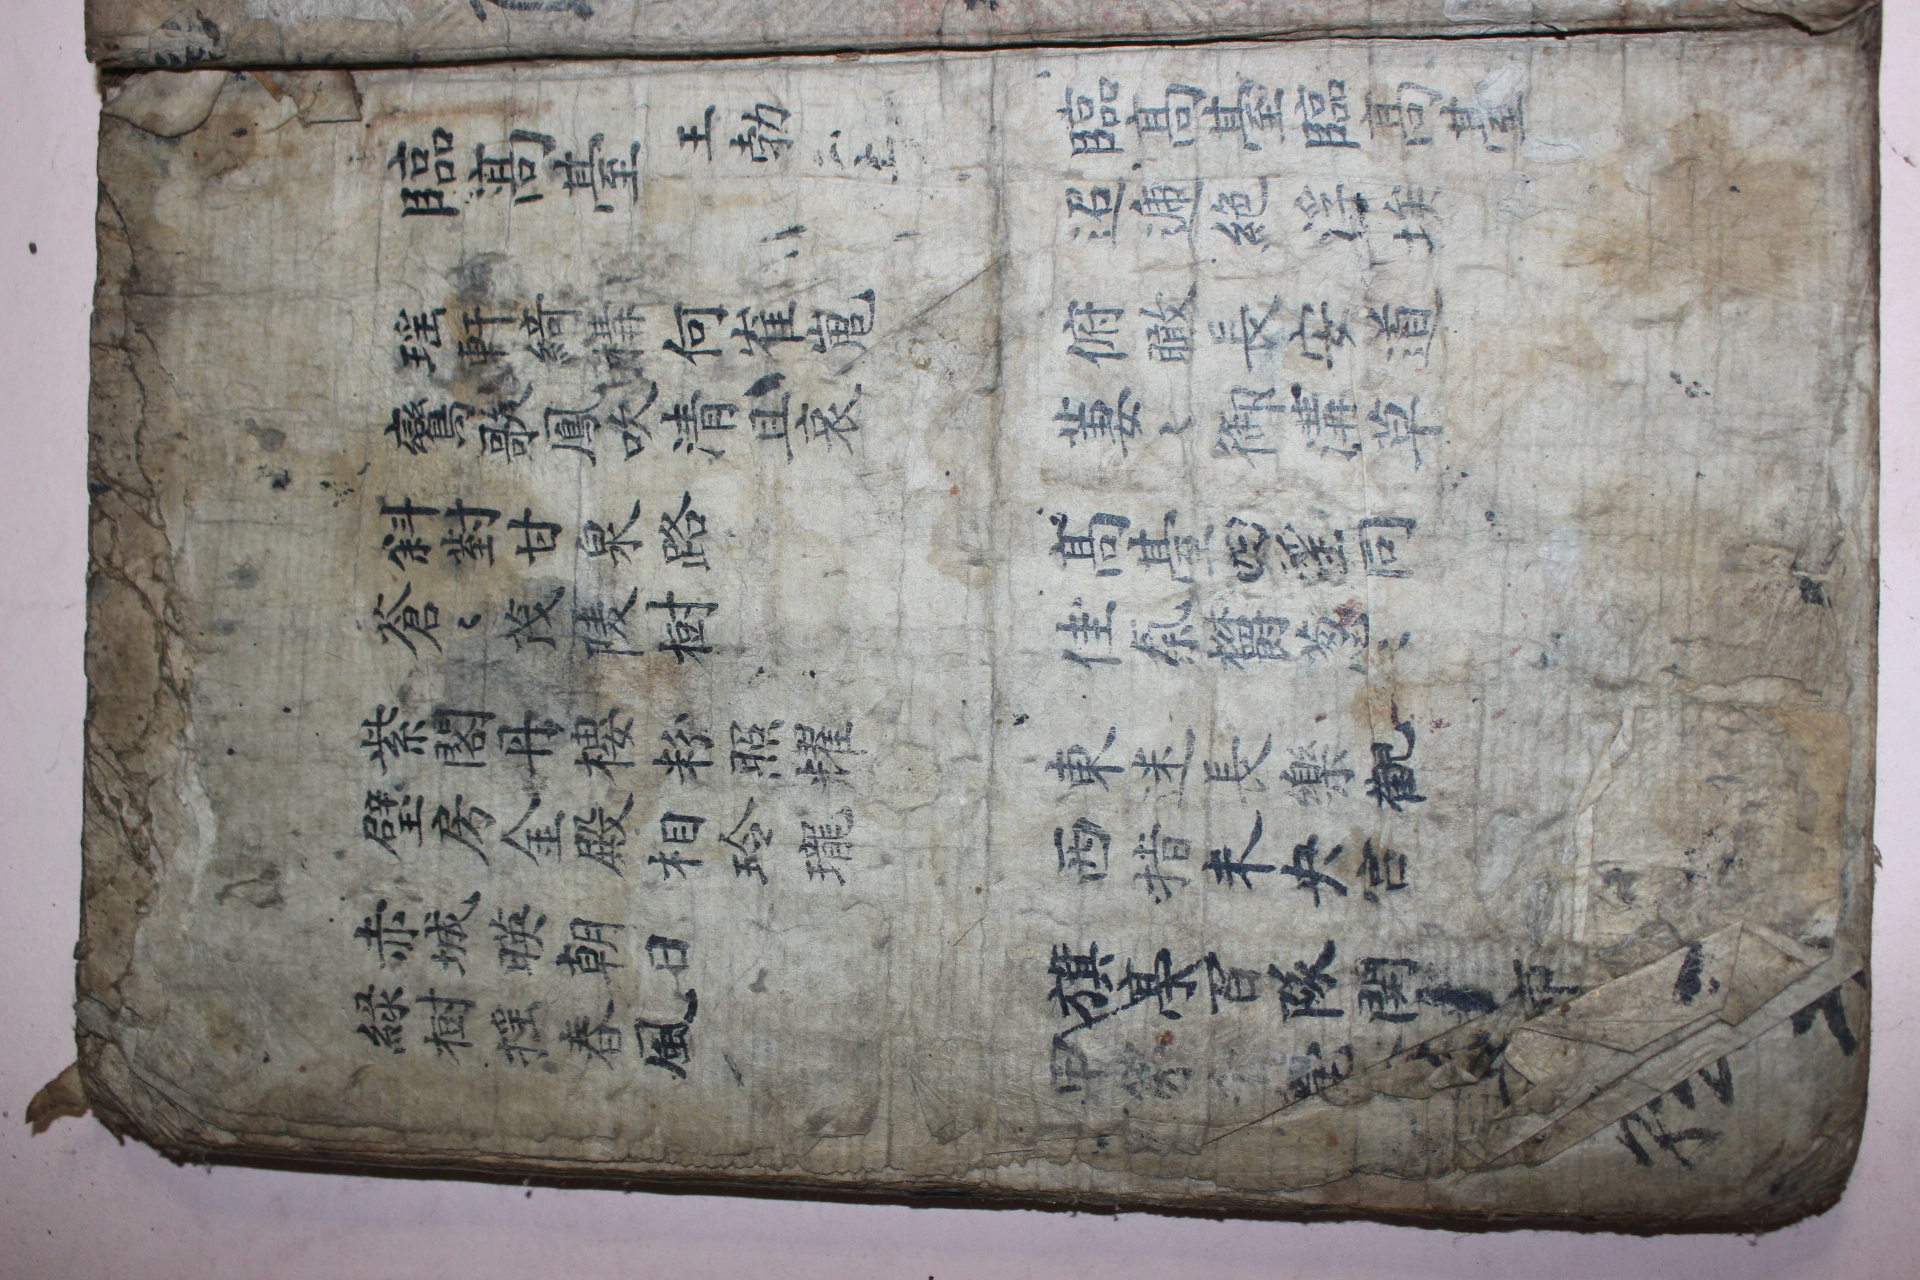 臨高臺 王勃
臨高臺臨高臺
迢遞絶浮埃
瑶軒綺構何崔嵬
鸞歌鳳吹清且哀
俯瞰長安道
萋〻御溝草
斜對甘泉路
蒼〻茂陵樹
高臺四望同
佳氣欝葱〻
紫閣丹樓粉照耀
璧房金殿相玲瓏
東迷長樂觀
西指未央宮
赤城暎朝日
綠樹摇春風
旗亭百隊開市
甲第甍